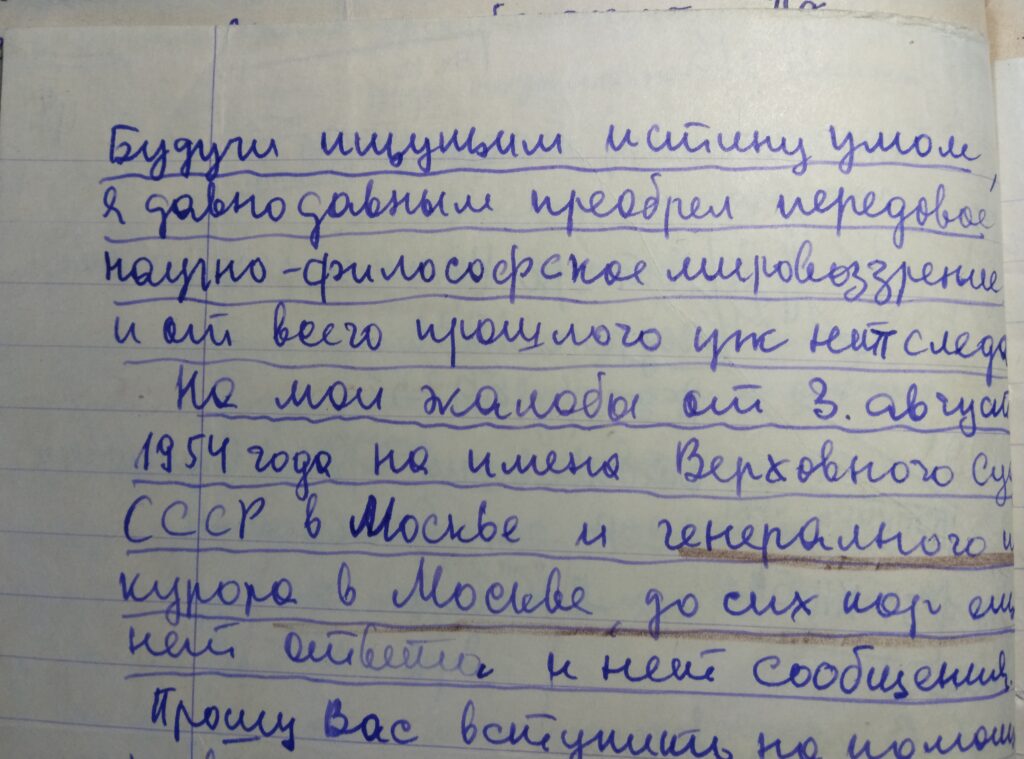 Будучи ищущим истину умом,
я давно давным преобрел передовое
научно-философское мировоззрение
и от всего прошлого уж нет следа
На мои жалобы от 3. август
1954 года на имена Верховного Су
СССР в Москве и генерального п
курора в Москве, до сих пор ещ
нет ответа и нет сообщения.
Прошу Вас вступить на помощ